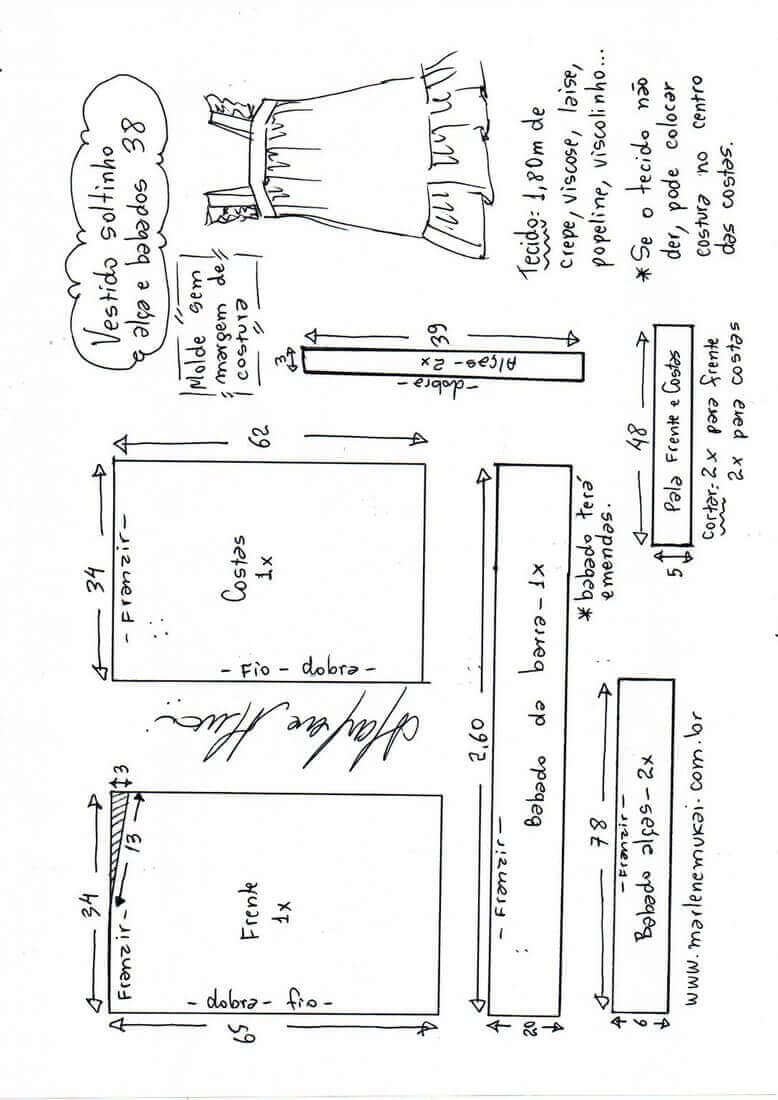 Vestido soltinho
alça e babados 38
Molde sem
margem de
costura
Tecido: 1,80m de
crepe, viscose, laise,
popeline, viscolinho...
* Se o tecido não
der, pode colocar
costura no centro
das costas.
34
3
- Franzir -
13
Frente
1x
- fio - dobra -
65
34
- Franzir -
62
Costas
1x
- Fio - dobra -
3
39
Alças - 2x
- dobra -
2,60
- Franzir -
Babado da barra - 1x
20
* babado terá
emendas.
48
Pala Frente e Costas
5
Cortar: 2x para frente
2x para costas
78
- Franzir -
Babado alças - 2x
6
www.marlenemukai.com.br
Marlene Mukai